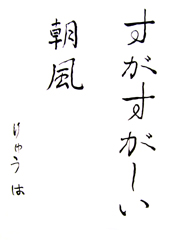 すがすがしい
朝風
りゅうは